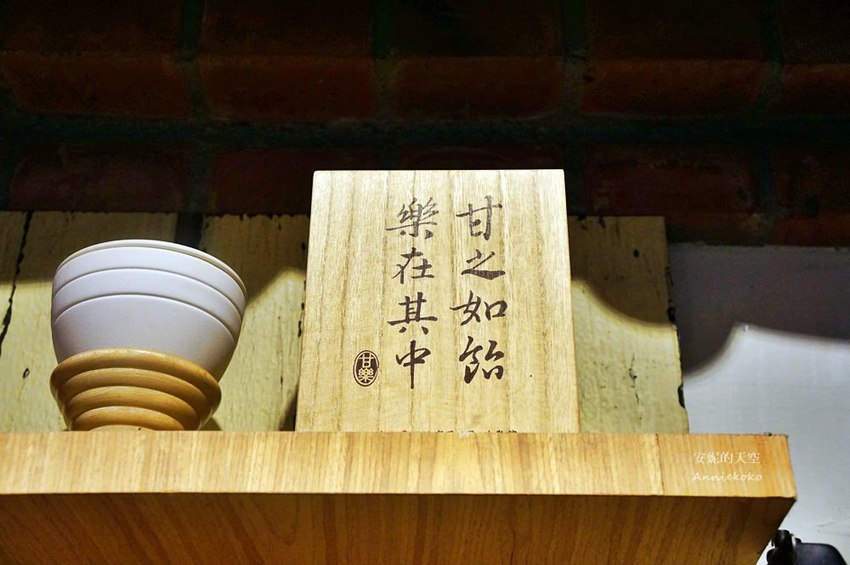 甘之如飴
樂在其中
甘樂
安妮的天空
Anniekoko